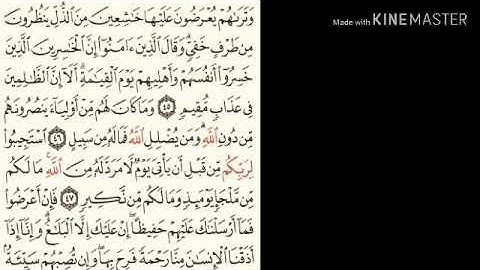 وَتَرَىٰهُمْ يُعْرَضُونَ عَلَيْهَا خَٰشِعِينَ مِنَ ٱلذُّلِّ يَنظُرُونَ
مِن طَرْفٍ خَفِىٍّ وَقَالَ ٱلَّذِينَ ءَامَنُوٓا۟ إِنَّ ٱلْخَٰسِرِينَ ٱلَّذِينَ
خَسِرُوٓا۟ أَنفُسَهُمْ وَأَهْلِيهِمْ يَوْمَ ٱلْقِيَٰمَةِ أَلَآ إِنَّ ٱلظَّٰلِمِينَ
فِى عَذَابٍ مُّقِيمٍ ٤٥ وَمَا كَانَ لَهُم مِّنْ أَوْلِيَآءَ يَنصُرُونَهُم
مِّن دُونِ ٱللَّهِ وَمَن يُضْلِلِ ٱللَّهُ فَمَا لَهُۥ مِن سَبِيلٍ ٤٦ ٱسْتَجِيبُوا۟
لِرَبِّكُم مِّن قَبْلِ أَن يَأْتِىَ يَوْمٌ لَّا مَرَدَّ لَهُۥ مِنَ ٱللَّهِ مَا لَكُم
مِّن مَّلْجَإٍ يَوْمَئِذٍ وَمَا لَكُم مِّن نَّكِيرٍ ٤٧ فَإِنْ أَعْرَضُوا۟
فَمَآ أَرْسَلْنَٰكَ عَلَيْهِمْ حَفِيظًا إِنْ عَلَيْكَ إِلَّا ٱلْبَلَٰغُ وَإِنَّآ إِذَآ
أَذَقْنَا ٱلْإِنسَٰنَ مِنَّا رَحْمَةً فَرِحَ بِهَا وَإِن تُصِبْهُمْ سَيِّئَةٌۢ
Made with KINEMASTER